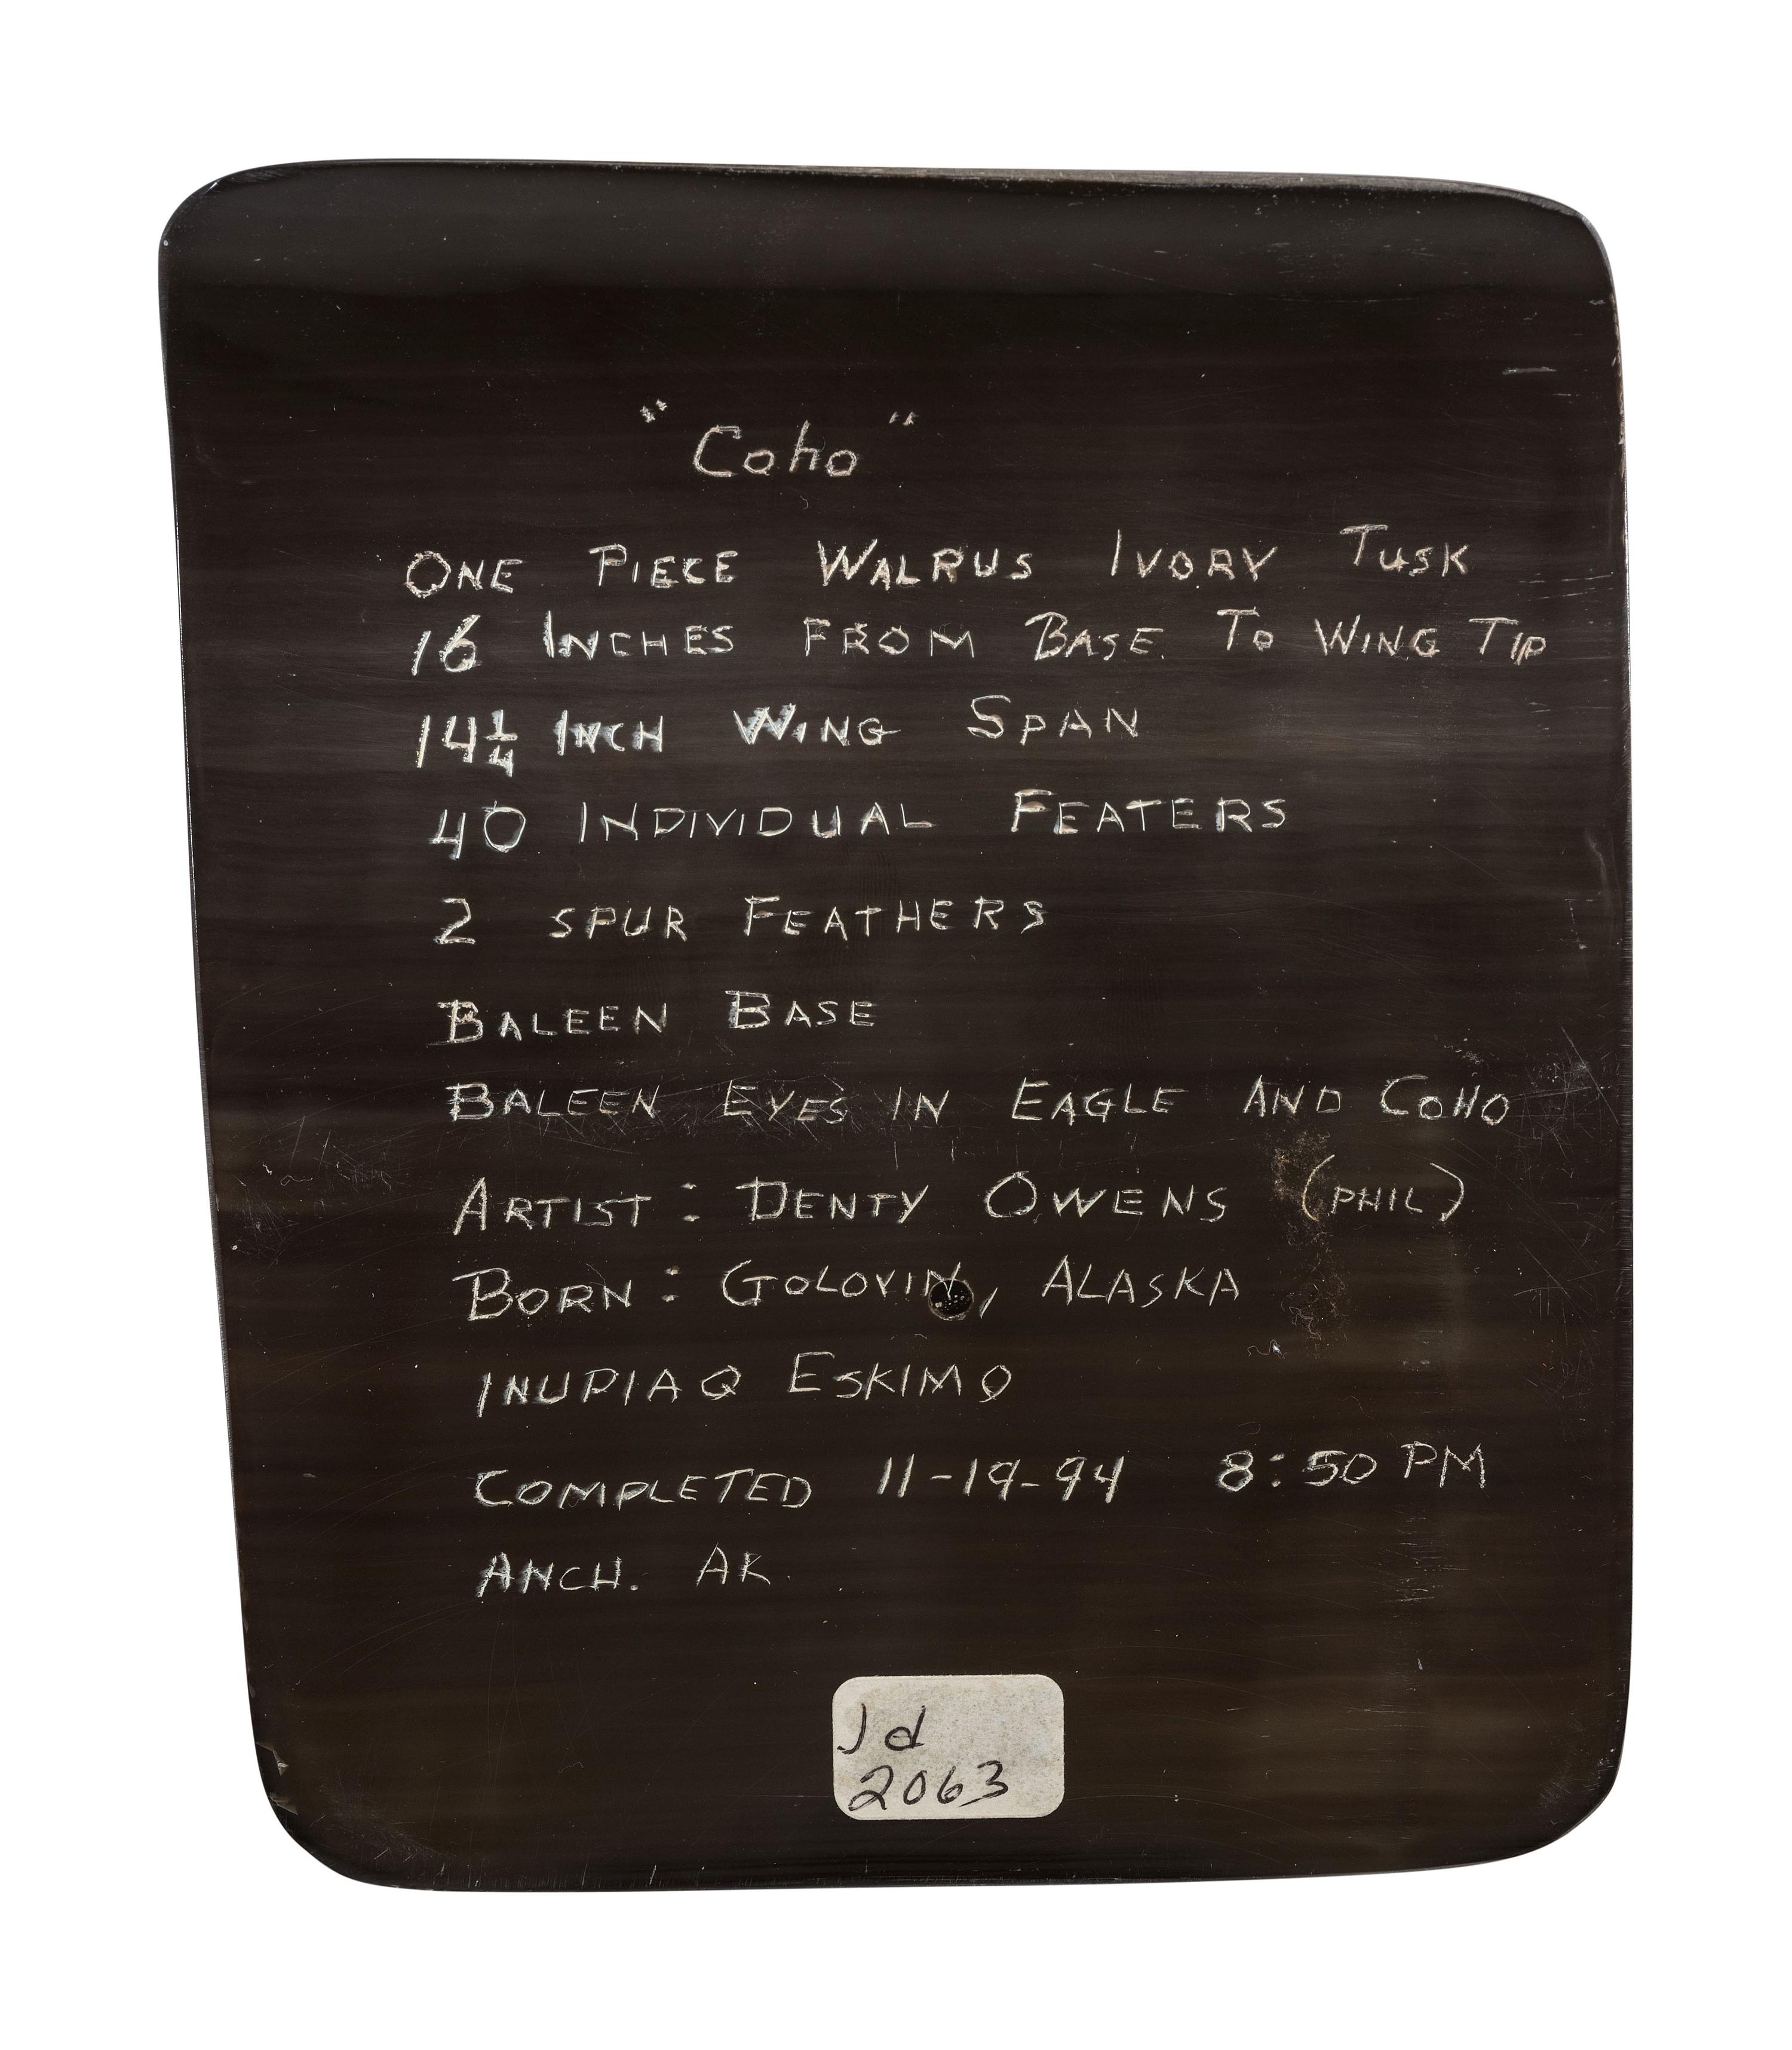 "Coho"
ONE PIECE WALRUS IVORY TUSK
16 INCHES FROM BASE TO WING TIP
14 1/4 INCH WING SPAN
40 INDIVIDUAL FEATERS
2 SPUR FEATHERS
BALEEN BASE
BALEEN EYES IN EAGLE AND COHO
ARTIST: DENTY OWENS (PHIL)
BORN: GOLOVIN, ALASKA
INUPIAQ ESKIMO
COMPLETED 11-19-94 8:50 PM
ANCH. AK.
Jd
2063